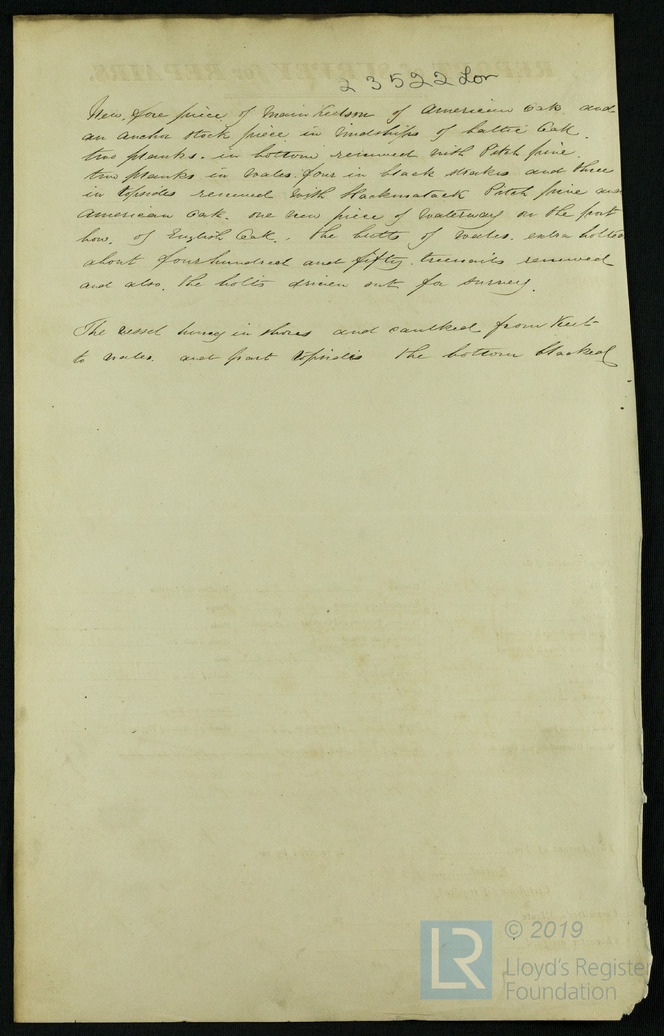 REPORT of SURVEY for REPAIRS.
23522 Lon
New fore piece of Main Keelson of American Oak and
an anchor stock piece in Midships of baltic Oak.
two planks in bottom renewed with Pitch pine.
two planks in Wales. four in black strakes and three
in Topsides renewed with Hackmatack Pitch pine and
American Oak. one new piece of Waterway on the port
bow. of English Oak. The butts of Wales. extra bolted
about four hundred and fifty treenails renewed
and also. the bolts driven out for survey.
The vessel hung in shores and caulked from Keel
to Wales. and part Topsides the bottom
LR
© 2019
Lloyd's Register
Foundation